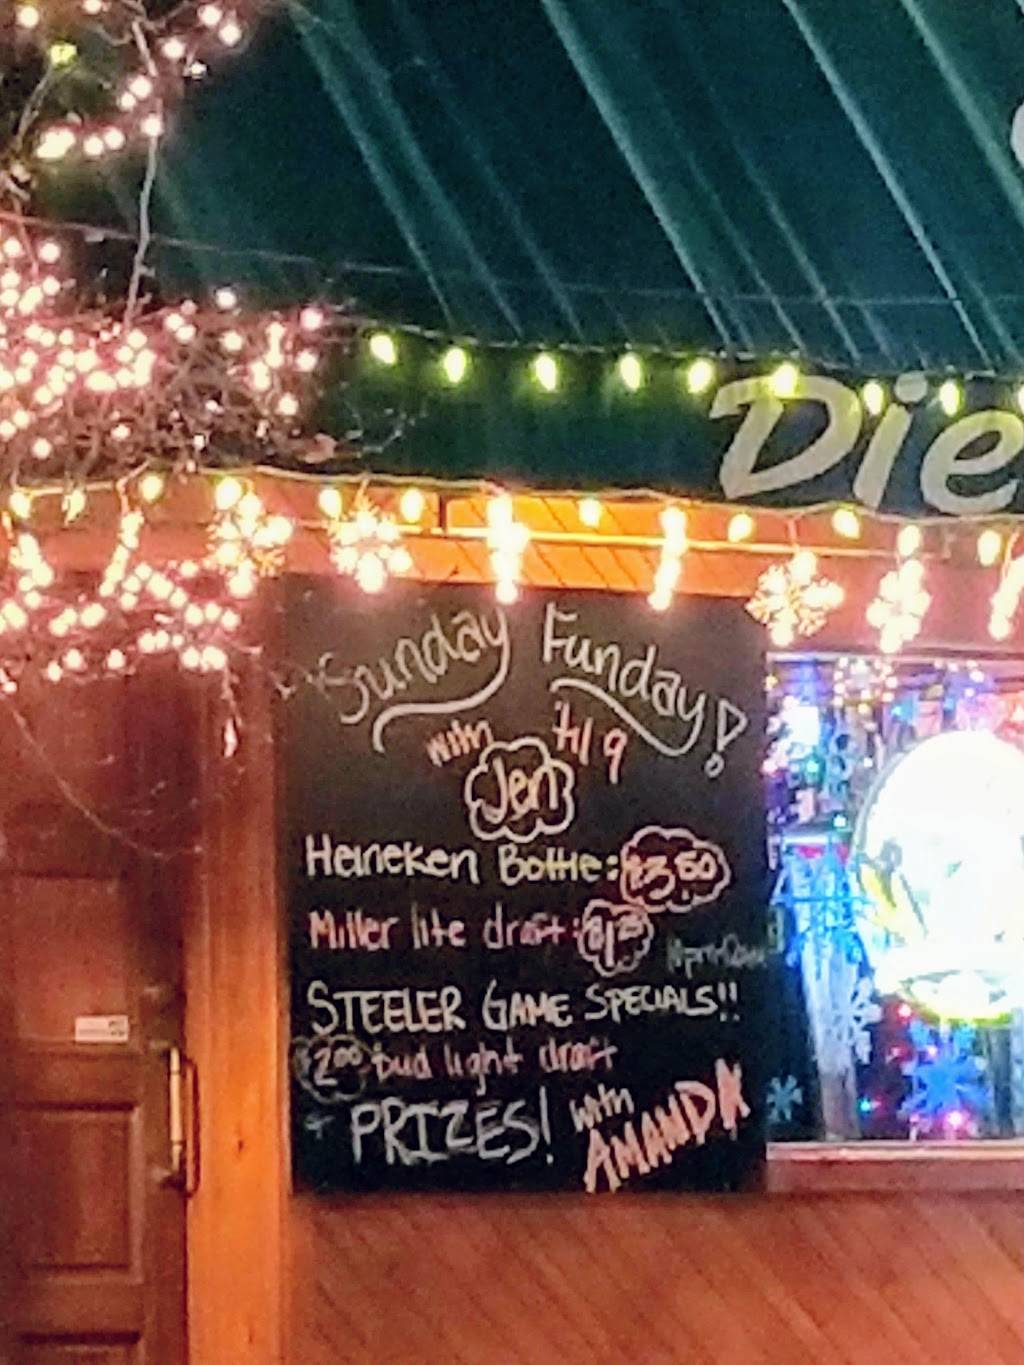 Die
Sunday Funday!
with til 9
Jen
Heineken Bottle: $3.50
Miller lite draft: $1.25
STEELER GAME SPECIALS!!
$2.00 bud light draft
+ PRIZES! with
AMANDA